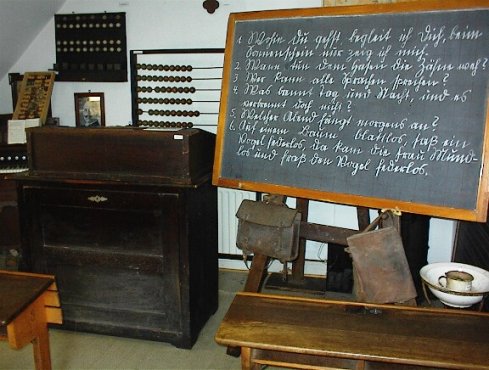 1. Wohin du gehst begleit ich Dich, beim
Sonnenschein nur zeig ich mich.
2. Wann thun dem Hasen die Zähne weh?
3. Wer kann alle Sprachen sprechen?
4. Was brennt Tag und Nacht, und es
verbrennt doch nicht?
5. Welcher Abend fängt morgens an?
6. Auf einem Baum blattlos, saß ein
Vogel federlos, da kam die Frau Mund-
los und fraß den Vogel federlos.